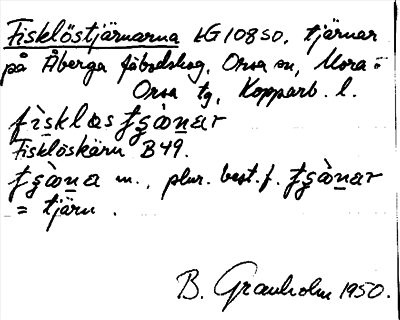 Fisklöstjärnarna LG 108 SO, tjärnar
på Åberga fäbodskog, Orsa sn, Mora o
Orsa tg, Kopparb. l.
Fisklöskärn B49.
m., plur. best. f.
= tjärn.
B. Granholm 1950.